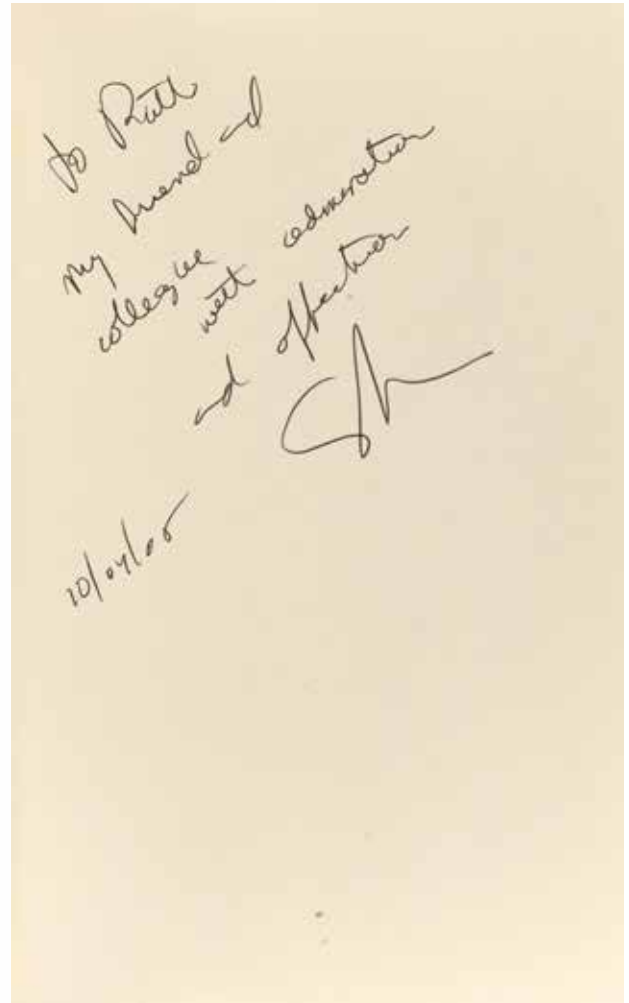 To Ruth
my friend and
colleague
with admiration
and affection
10/04/05